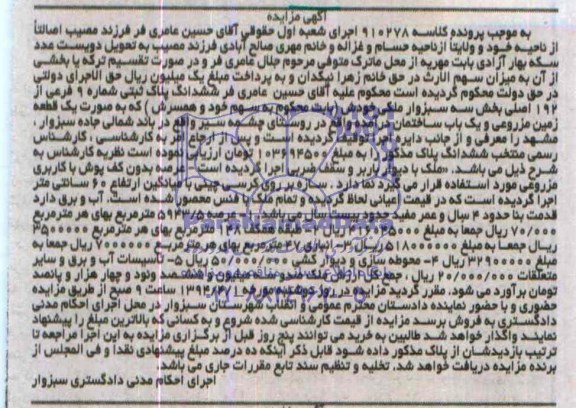 آگهی مزایده
به موجب پرونده کلاسه ۹۱۰۲۷۸ اجرای شعبه اول حقوقی آقای حسین عامری فر فرزند مصیب اصالتاً
از ناحیه خود و ولایتاً ازناحیه حسام و غزاله و خانم مهری صالح آبادی فرزند مصیب به تحویل دویست عدد
سکه بهار آزادی بابت مهریه از محل ماترک متوفی مرحوم جلال عامری فر و در صورت تقسیم ترکه یا بخشی
از آن به میزان سهم الارث در حق خانم زهرا نیکدان و به پرداخت مبلغ یک میلیون ریال حق الاجرای دولتی
در حق دولت محکوم گردیده است محکوم علیه آقای حسین عامری فر ششدانگ پلاک ثبتی شماره ۹ فرعی از
۱۹۲ اصلی بخش سه سبزوار ملکی خودش (بابت محکوم به سهم خود و همسرش) که به صورت یک قطعه
زمین مزروعی و یک باب ساختمان در آمده واقع در روستای چشمه سبز واقع در باند شمالی جاده سبزوار ،
مشهد را معرفی و از جانب دایره اجرا توقیف گردیده است و پس از ارجاع امر به کارشناسی ، کارشناس
رسمی منتخب ششدانگ پلاک مذکور را به مبلغ تومان ارزیابی نموده است نظریه کارشناس به
شرح ذیل می باشد. «ملک با دیوار باربر و سقف ضربی اجرا گردیده است. عرصه بدون کف پوش با کاربری
مزروعی مورد استفاده قرار می گیرد نما ندارد . سازه بر روی کرسی چینی با میانگین ارتفاع ۶۰ سانتی متر
اجرا گردیده است که در قیمت اعیانی لحاظ گردیده و تمام ملک با فنس محصور شده است. آب و برق دارد
قدمت بنا حدود ۴ سال و عمر مفید حدود بیست سال می باشد ۱- عرصه مترمربع بهای هر مترمربع
۷۰/۰۰۰ ریال جمعا به مبلغ طبقه همکف مترمربع بهای هر مترمربع
ریال جمعا به مبلغ ۵۱۸۰۰۰۰۰۰ ریال ۳- انباری ۴۷ مترمربع بهای هر مترمربع ۷۰۰۰۰۰ ریال جمعا به
مبلغ ۳۲۹۰۰۰۰۰ ریال ۴- محوطه سازی و دیوار کشی ریال ۵- تاسیسات آب و برق و سایر
متعلقات ریال ، جمع کل ارزش ملک صدو سه میلیون و ششصد ونود و چهار هزار و پانصد
تومان برآورد می شود. مقرر گردید مزایده در روز دوشنبه مورخه ساعت ۹ صبح از طریق مزایده
حضوری و با حضور نماینده دادستان محترم عمومی و انقلاب شهرستان سبزوار در محل اجرای احکام مدنی
دادگستری به فروش برسد مزایده از قیمت کارشناسی شده شروع و به کسانی که بالاترین مبلغ را پیشنهاد
نمایند واگذار خواهد شد طالبین به خرید می توانند پنج روز قبل از برگزاری مزایده به این اجرا مراجعه تا
ترتیب بازدیدشان از پلاک مذکور داده شود قابل ذکر اینکه ده درصد مبلغ پیشنهادی نقدا و فی المجلس از
برنده مزایده دریافت خواهد شد. تخلیه و تنظیم سند تابع مقررات جاری می باشد.
اجرای احکام مدنی دادگستری سبزوار